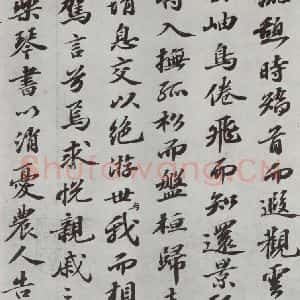 憩時矯首而遐觀雲
岫鳥倦飛而知還景
將入撫孤松而盤桓歸
請息交以絕游世与我而相
駕言兮焉求悅親戚之
樂琴書以消憂農人告
Shufawang.CN